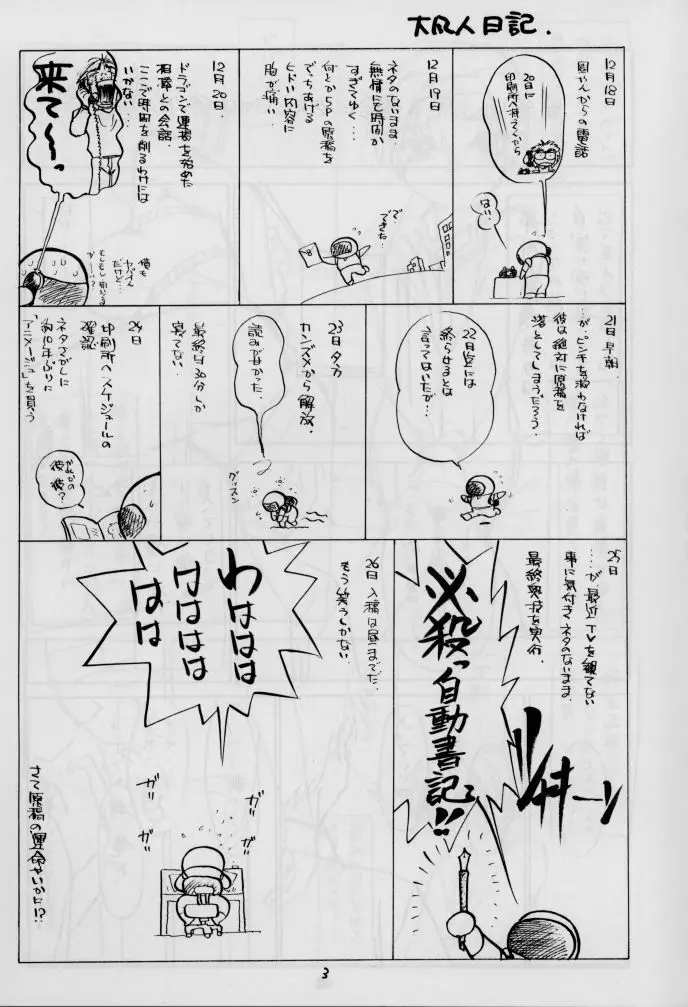 大凡人日記.
12月18日
岡やんからの電話
20日に
印刷所へ持ってくから
はい…
12月19日
ネタのないまま
無情にも時間が
すぎてゆく…
何とか5Pの原稿を
でっちあげる
ヒドい内容に
胸が痛い
で、
できた…
12月20日
ドラゴンで連載を始めた
相棒との会話.
ここで時間を削るわけには
いかない…
来て〜っ
俺も
ヤバイん
だけど…
21日 早朝
…が、ピンチを救わなければ
彼は絶対に原稿を
落としてしまうだろう.
22日までには
終らせるとは
言ってはいたが…
23日 夕方
カンヅメから解放.
読みが甘かった.
最終日は30分しか
寝てない
グッスン
24日
印刷所へスケジュールの
確認
ネタさがしに
約10年ぶりに
「アニメージュ」を買う
25日
……が、最近TVを観てない
事に気付きネタのないまま
最終奥技を実行.
必殺っ自動書記!!
26日 入稿は昼までだ.
もう笑うしかない
わははは
はははは
はは
ガリ
ガリ
ガリ
ガリ
さて原稿の運命やいかに!?
3